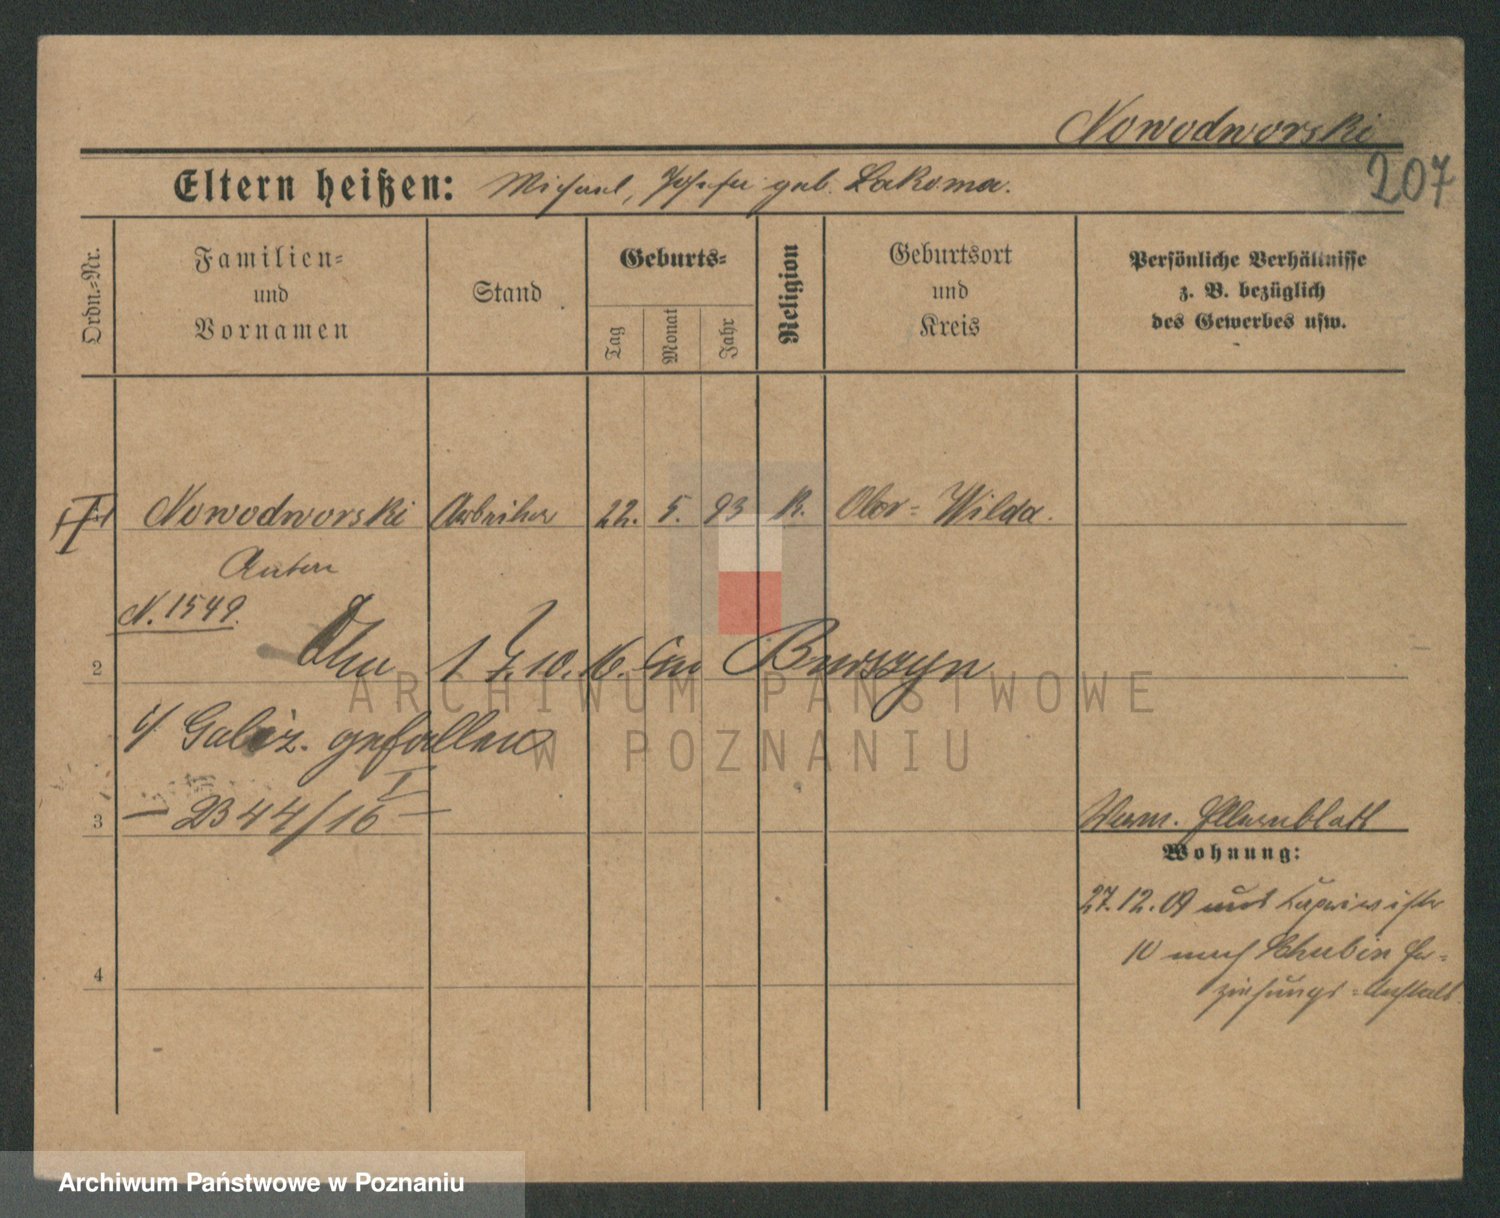 Nowodworski
207
Eltern heißen: Michael, Josefa geb. Lakoma.
Ordn.-Nr.
Familien-
und
Vornamen
Stand
Geburts-
Tag
Monat
Jahr
Religion
Geburtsort
und
Kreis
Persönliche Verhältnisse
z. B. bezüglich
des Gewerbes usw.
Nowodworski Arbeiter 22. 5. 93 K. Ober-Wilda.
Anton
N. 1549.
2
10. 16. Bursszyn
Galiz. gefallen
3
2344/16 I
Verm. Elternblatt
Wohnung:
27.12.09 aus
10 nach Schubin Er-
ziehungs-Anstalt.
4
ARCHIWUM PAŃSTWOWE
W POZNANIU
Archiwum Państwowe w Poznaniu